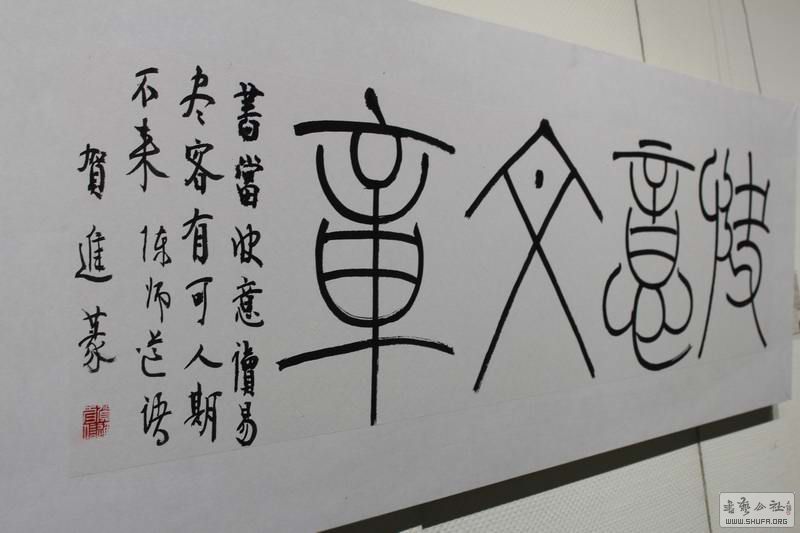 快意文章
書當快意讀易
尽客有可人期
不来 陈师道语
賀進篆
书艺公社
WWW.SHUFA.ORG